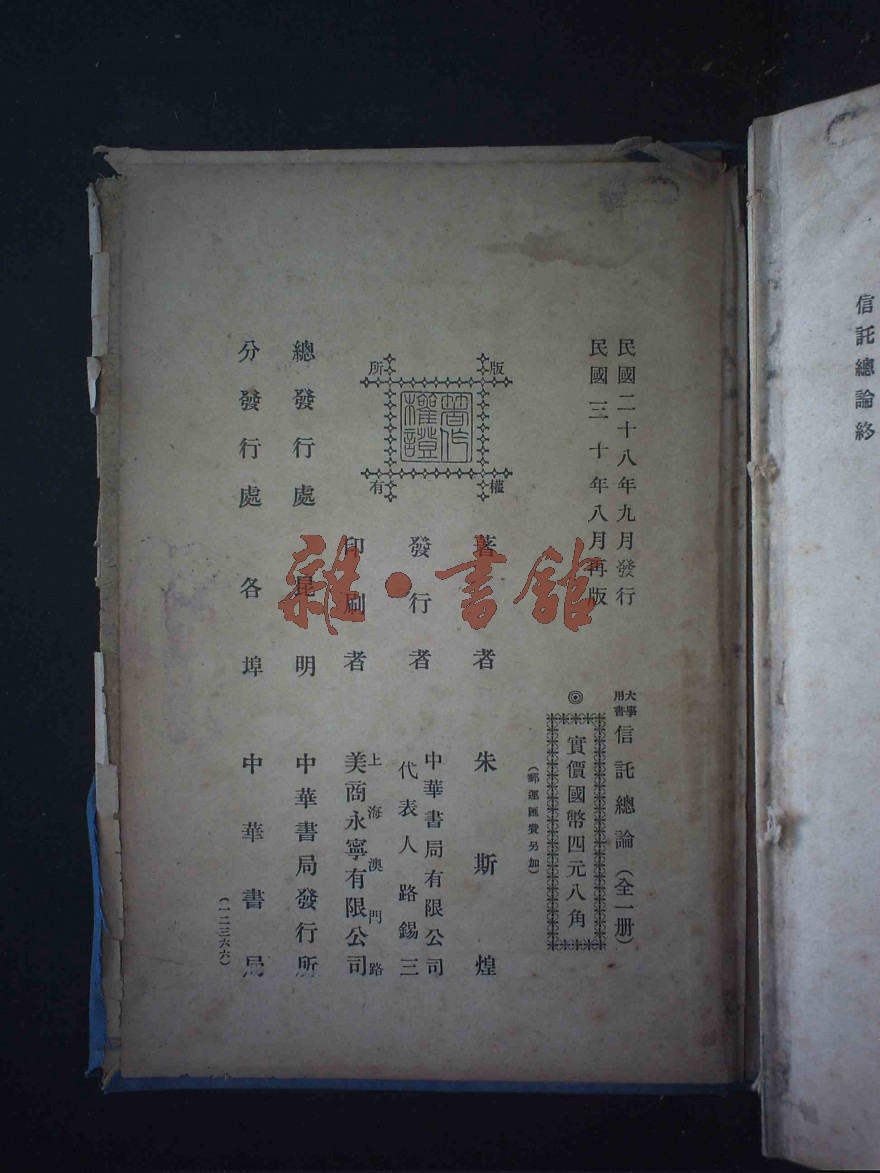 信託總論終
民國二十八年九月發行
民國三十年八月再版
大學用書 信託總論（全一册）
◎ 實價國幣四元八角
（郵運匯費另加）
版權所有
著作權證
著者 朱斯煌
發行者 中華書局有限公司
代表人路錫三
印刷者 上海澳門路
美商永寧有限公司
總發行處 昆明 中華書局發行所
分發行處 各埠 中華書局
（一二三六六）
雜·書館